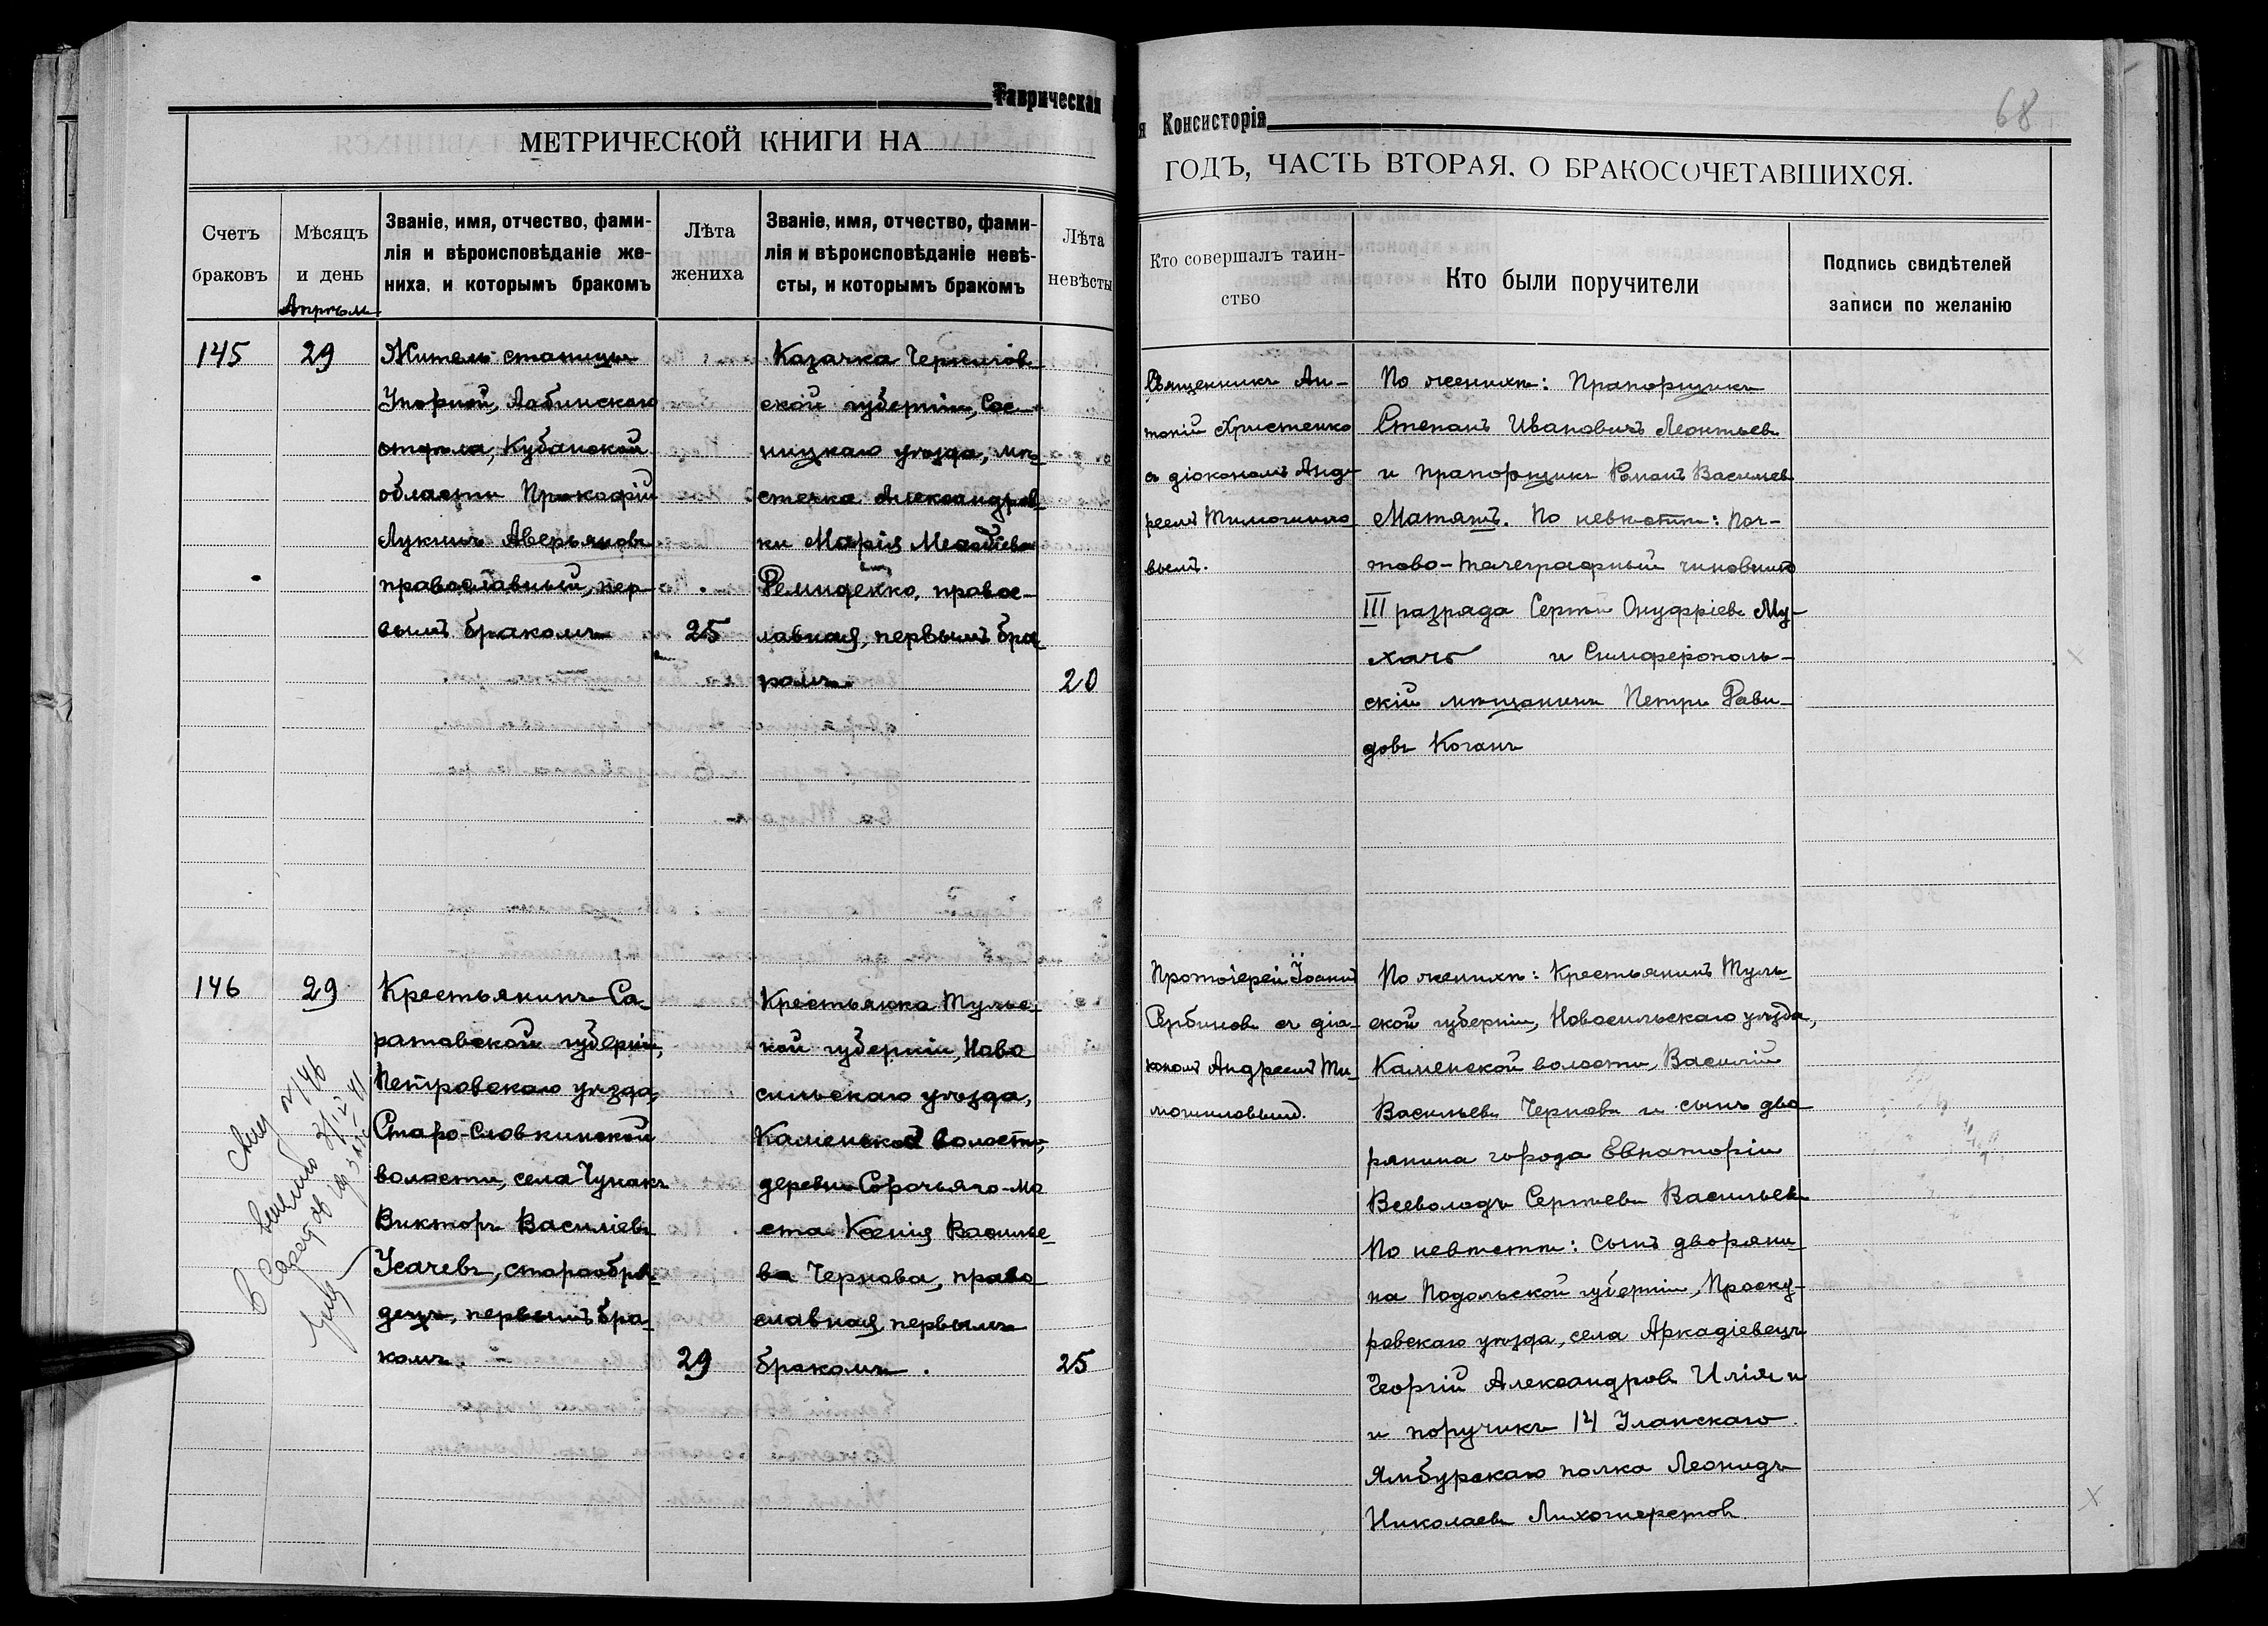 Таврическая
я Консисторія
68
МЕТРИЧЕСКОЙ КНИГИ НА
ГОДЪ, ЧАСТЬ ВТОРАЯ, О БРАКОСОЧЕТАВШИХСЯ.
Счетъ
браковъ
Мѣсяцъ
и день
Апрѣль
Званіе, имя, отчество, фами-
лія и вѣроисповѣданіе же-
ниха, и которымъ бракомъ
Лѣта
жениха
Званіе, имя, отчество, фами-
лія и вѣроисповѣданіе невѣ-
сты, и которымъ бракомъ
Лѣта
невѣсты
Кто совершалъ таин-
ство
Кто были поручители
Подпись свидѣтелей
записи по желанію
145
29
Житель станицы
Упорной, Лабинскаго
отдѣла, Кубанской
области Прокофій
Лукинъ Аверьяновъ
православный, пер-
вымъ бракомъ
25
Казачка Чернигов-
ской губерніи, Сос-
ницкаго уѣзда, мѣ-
стечка Александров-
ки Марія
правос-
лавная, первымъ бра-
комъ
20
Священникъ Ан-
тоній Христенко
съ діакономъ Анд-
реемъ Тимошило-
вымъ.
По женихѣ: Прапорщикъ
Степанъ Ивановичъ Леонтьевъ
и прапорщикъ Романъ Васильев
Матяшъ. По невѣстѣ: Поч-
тово-телеграфный чиновникъ
III разряда Сергѣй Онуфріевъ Му-
хачъ и Симферополь-
скій мѣщанинъ Петръ Дави-
довъ Коганъ
146
29
Крестьянинъ Са-
ратовской губерніи,
Петровскаго уѣзда,
Старо-Славкинской
волости, села Чунакъ
Викторъ Василіевъ
Усачевъ, старообря-
децъ, первымъ бра-
комъ.
29
Крестьянка Тульс-
кой губерніи, Ново
сильскаго уѣзда,
Каменской волости,
деревни Сорочьяго-Мо
ста Ксенія Василье-
ва Чернова, право
славная, первымъ
бракомъ.
25
Протоіерей Іоаннъ
Сербиновъ съ діа-
кономъ Андреемъ Ти-
мошиловымъ.
По женихѣ: Крестьянинъ Туль-
ской губерніи, Новосильскаго уѣзда,
Каменской волости, Василій
Васильевъ Черновъ и сынъ дво
рянина города Евпаторіи
Всеволодъ Сергѣевъ Васильевъ
По невѣстѣ: Сынъ дворяни-
на Подольской губерніи, Проску-
ровскаго уѣзда, села Аркадіевецъ
Георгій Александровъ
и поручикъ 14 Уланскаго
Ямбурскаго полка Леонидъ
Николаевъ Лихошерстовъ